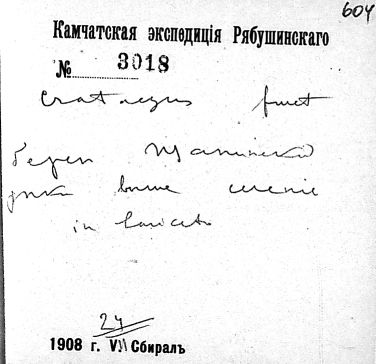 604
Камчатская экспедиція Рябушинскаго
№ 3018
Crataegus fruct
берег
выше
in laricet
24
1908 г. VII Сбиралъ